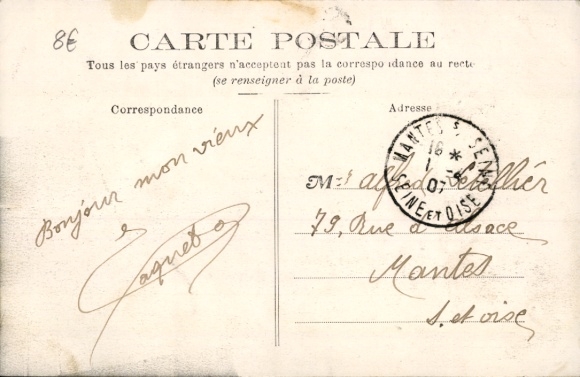 8€
CARTE POSTALE
Tous les pays étrangers n'acceptent pas la correspondance au recto
(se renseigner à la poste)
Correspondance
Adresse
Bonjour mon vieux
Paquet
MANTES S SEINE
16 *
07
SEINE ET OISE
Mr
79, Rue d'Alsace
Mantes
S. et oise